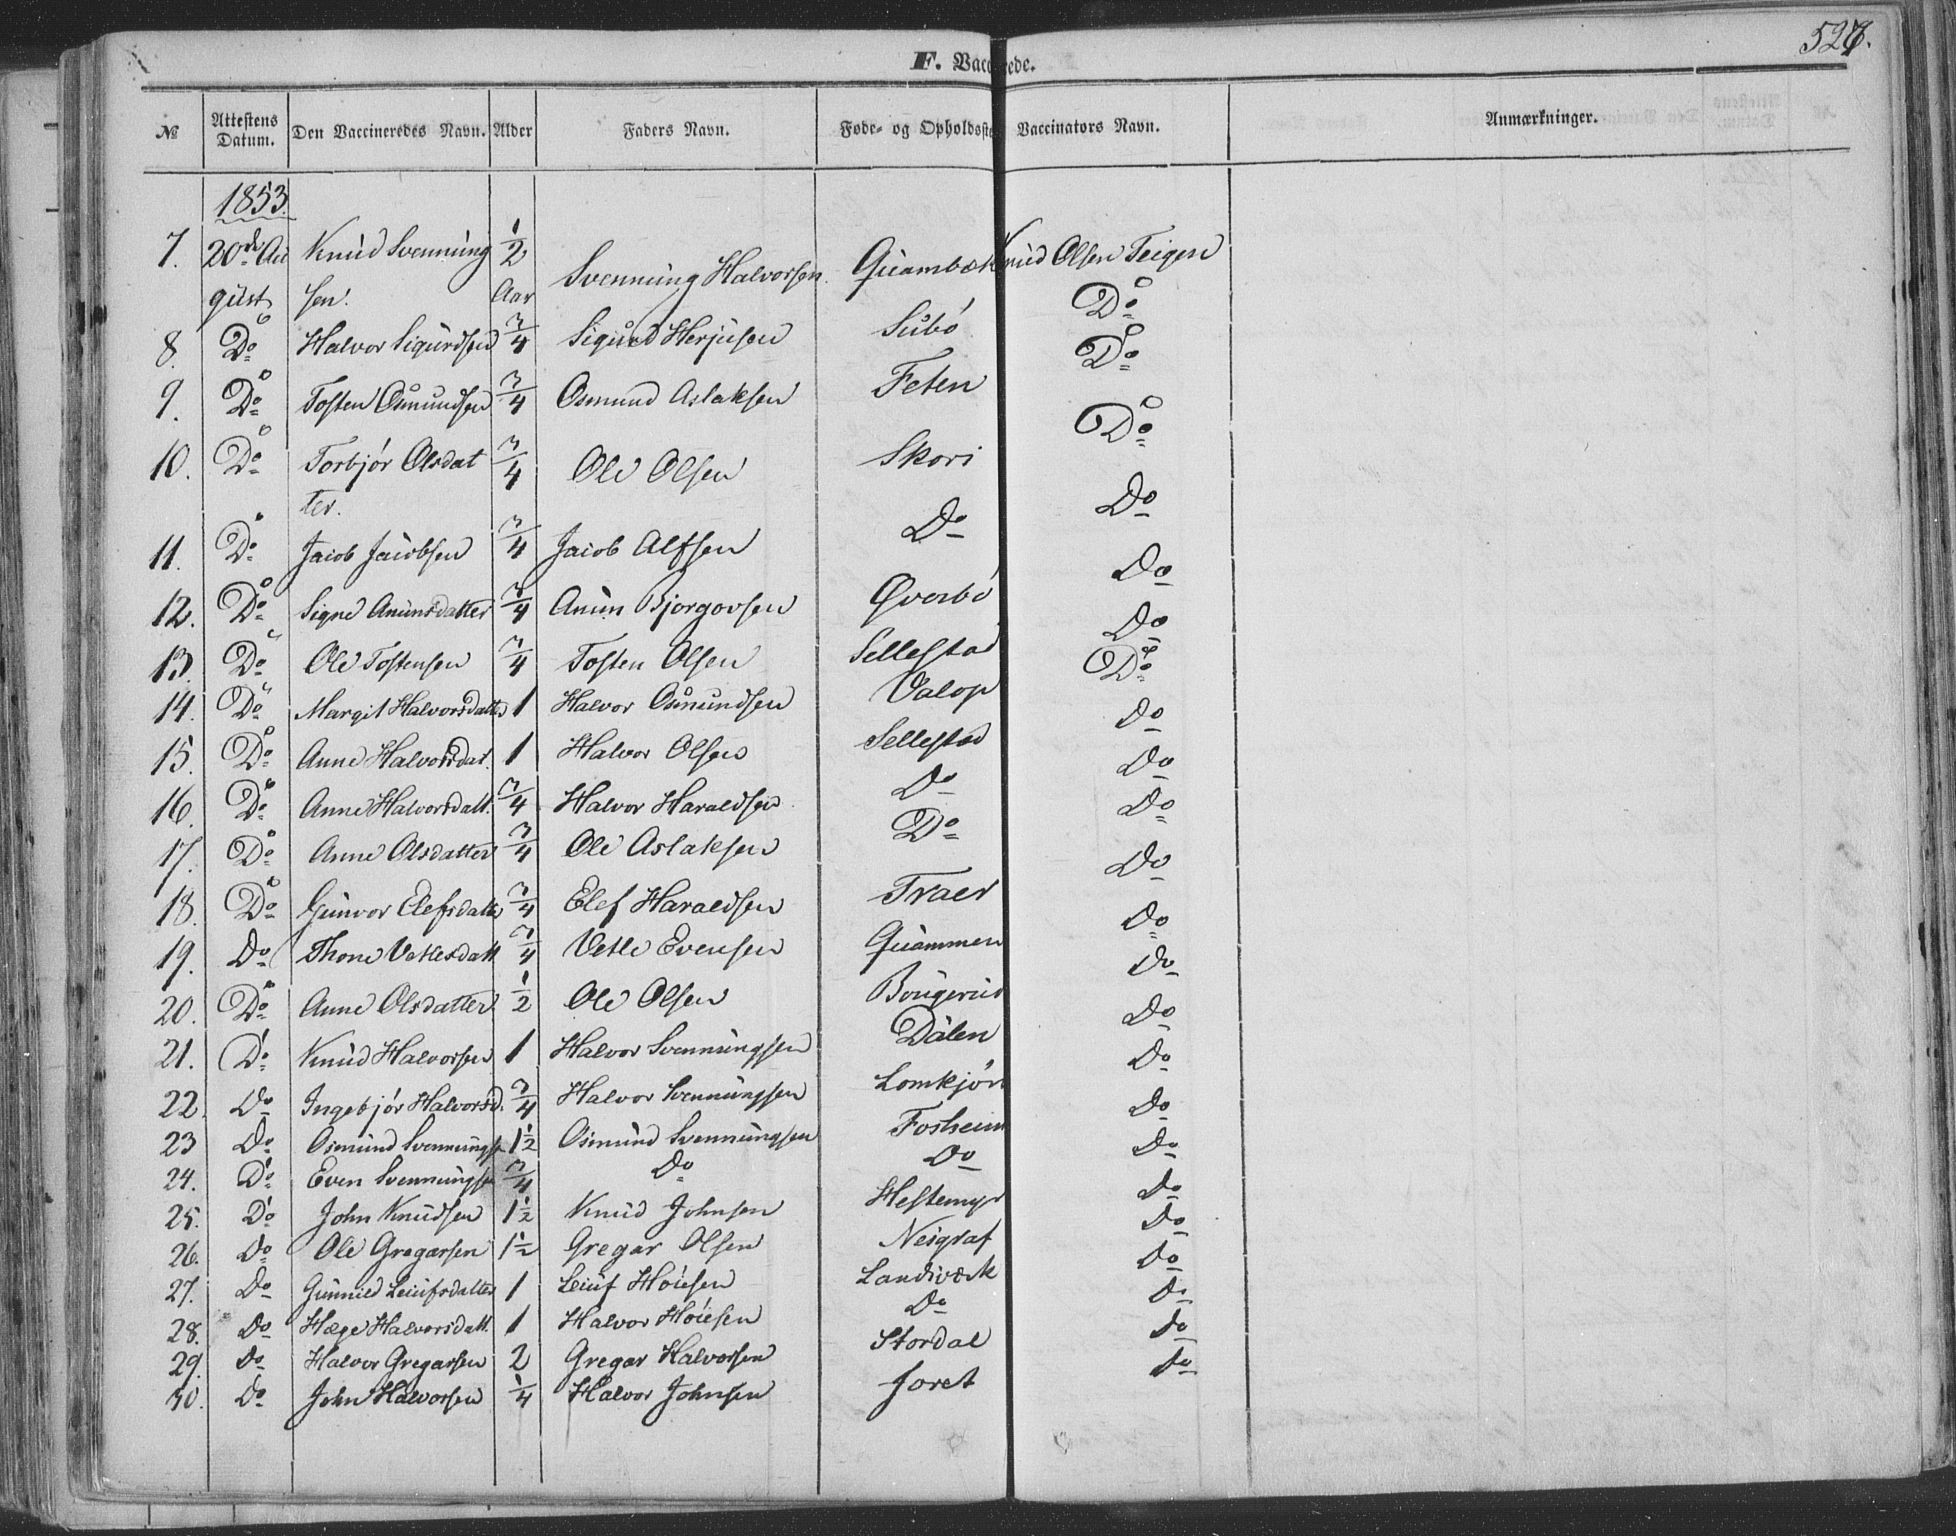 527.
F. Vaccinerede.
№ | Attestens Datum. | Den Vaccineredes Navn. | Alder | Faders Navn. | Føde- og Opholdsste | Vaccinators Navn. | Anmærkninger.
1853.
7. | 20de Au | Knud Svennung | 1/2 | Svennung Halvorsen. | Quambæk | Knud Olsen Teigen
gust | sen. | Aar
8. | Do | Halvor Sigurdsen | 3/4 | Sigurd Herjusen | Subö | Do
9. | Do | Tosten Osmundsen | 3/4 | Osmund Aslaksen | Feten | Do
10. | Do | Torbjör Olsdat | 3/4 | Ole Olsen | Skori | Do
ter.
11. | Do | Jacob Jacobsen | 3/4 | Jacob Alfsen | Do | Do
12. | Do | Signe Anunsdatter | 3/4 | Anun Bjorgovsen | Överbö | Do
13. | Do | Ole Tostensen | 3/4 | Tosten Olsen | Sellestad | Do
14. | Do | Margit Halvorsdatter | 1 | Halvor Osmundsen | Valop | Do
15. | Do | Anne Halvorsdat. | 1 | Halvor Olsen | Sellestad | Do
16. | Do | Anne Halvorsdatt. | 3/4 | Halvor Haraldsen | Do | Do
17. | Do | Anne Olsdatter | 3/4 | Ole Aslaksen | Do | Do
18. | Do | Gunvor Elefsdatter | 3/4 | Elef Haraldsen | Traer | Do
19. | Do | Thone Vetlesdatt | 3/4 | Vetle Evensen | Quammen | Do
20. | Do | Anne Olsdatter | 1/2 | Ole Olsen | Bougerud | Do
21. | Do | Knud Halvorsen | 1 | Halvor Svennungsen | Dalen | Do
22. | Do | Ingebjör Halvorsd. | 3/4 | Halvor Svennungsen | Lomkjön | Do
23 | Do | Osmund Svennungse | 1 1/2 | Osmund Svennungsen | Fosheim | Do
24. | Do | Even Svennungse | 3/4 | Do | Do | Do
25. | Do | John Knudsen | 1 1/2 | Knud Johnsen | Hestemyr | Do
26. | Do | Ole Gregarsen | 1 1/2 | Gregar Olsen | Neigraf | Do
27. | Do | Gunnild Leiufsdatter | 1 | Leiuf Höiesen | Landsværk | Do
28. | Do | Hæge Halvorsdatt. | 1 | Halvor Höiesen | Do | Do
29. | Do | Halvor Gregarsen | 2 | Gregar Halvorsen | Stordal | Do
30. | Do | John Halvorsen | 1/4 | Halvor Johnsen | Joret | Do